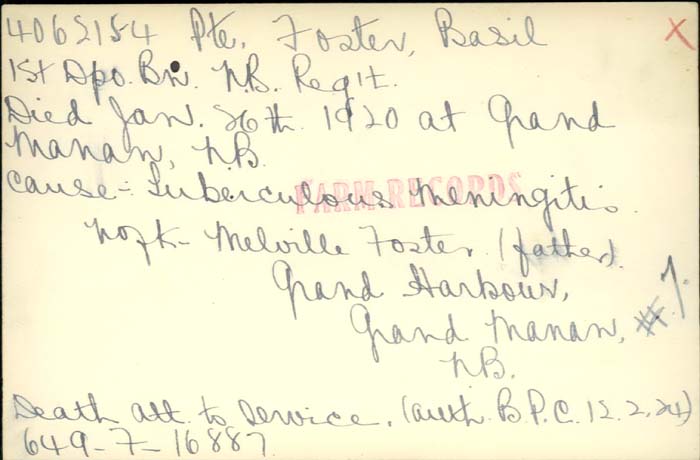 4065154 Pte. Foster, Basil X
1st Dpo. Bn. N.B. Regit.
Died Jan. 26th 1920 at Grand
Manan, NB.
Cause = Tuberculous Meningitis.
FARM RECORDS
nofk - Melville Foster (father).
Grand Harbour,
Grand Manan, #7.
NB.
Death att. to Service. (auth. B.P.C. 12.2.24)
649-7-16887